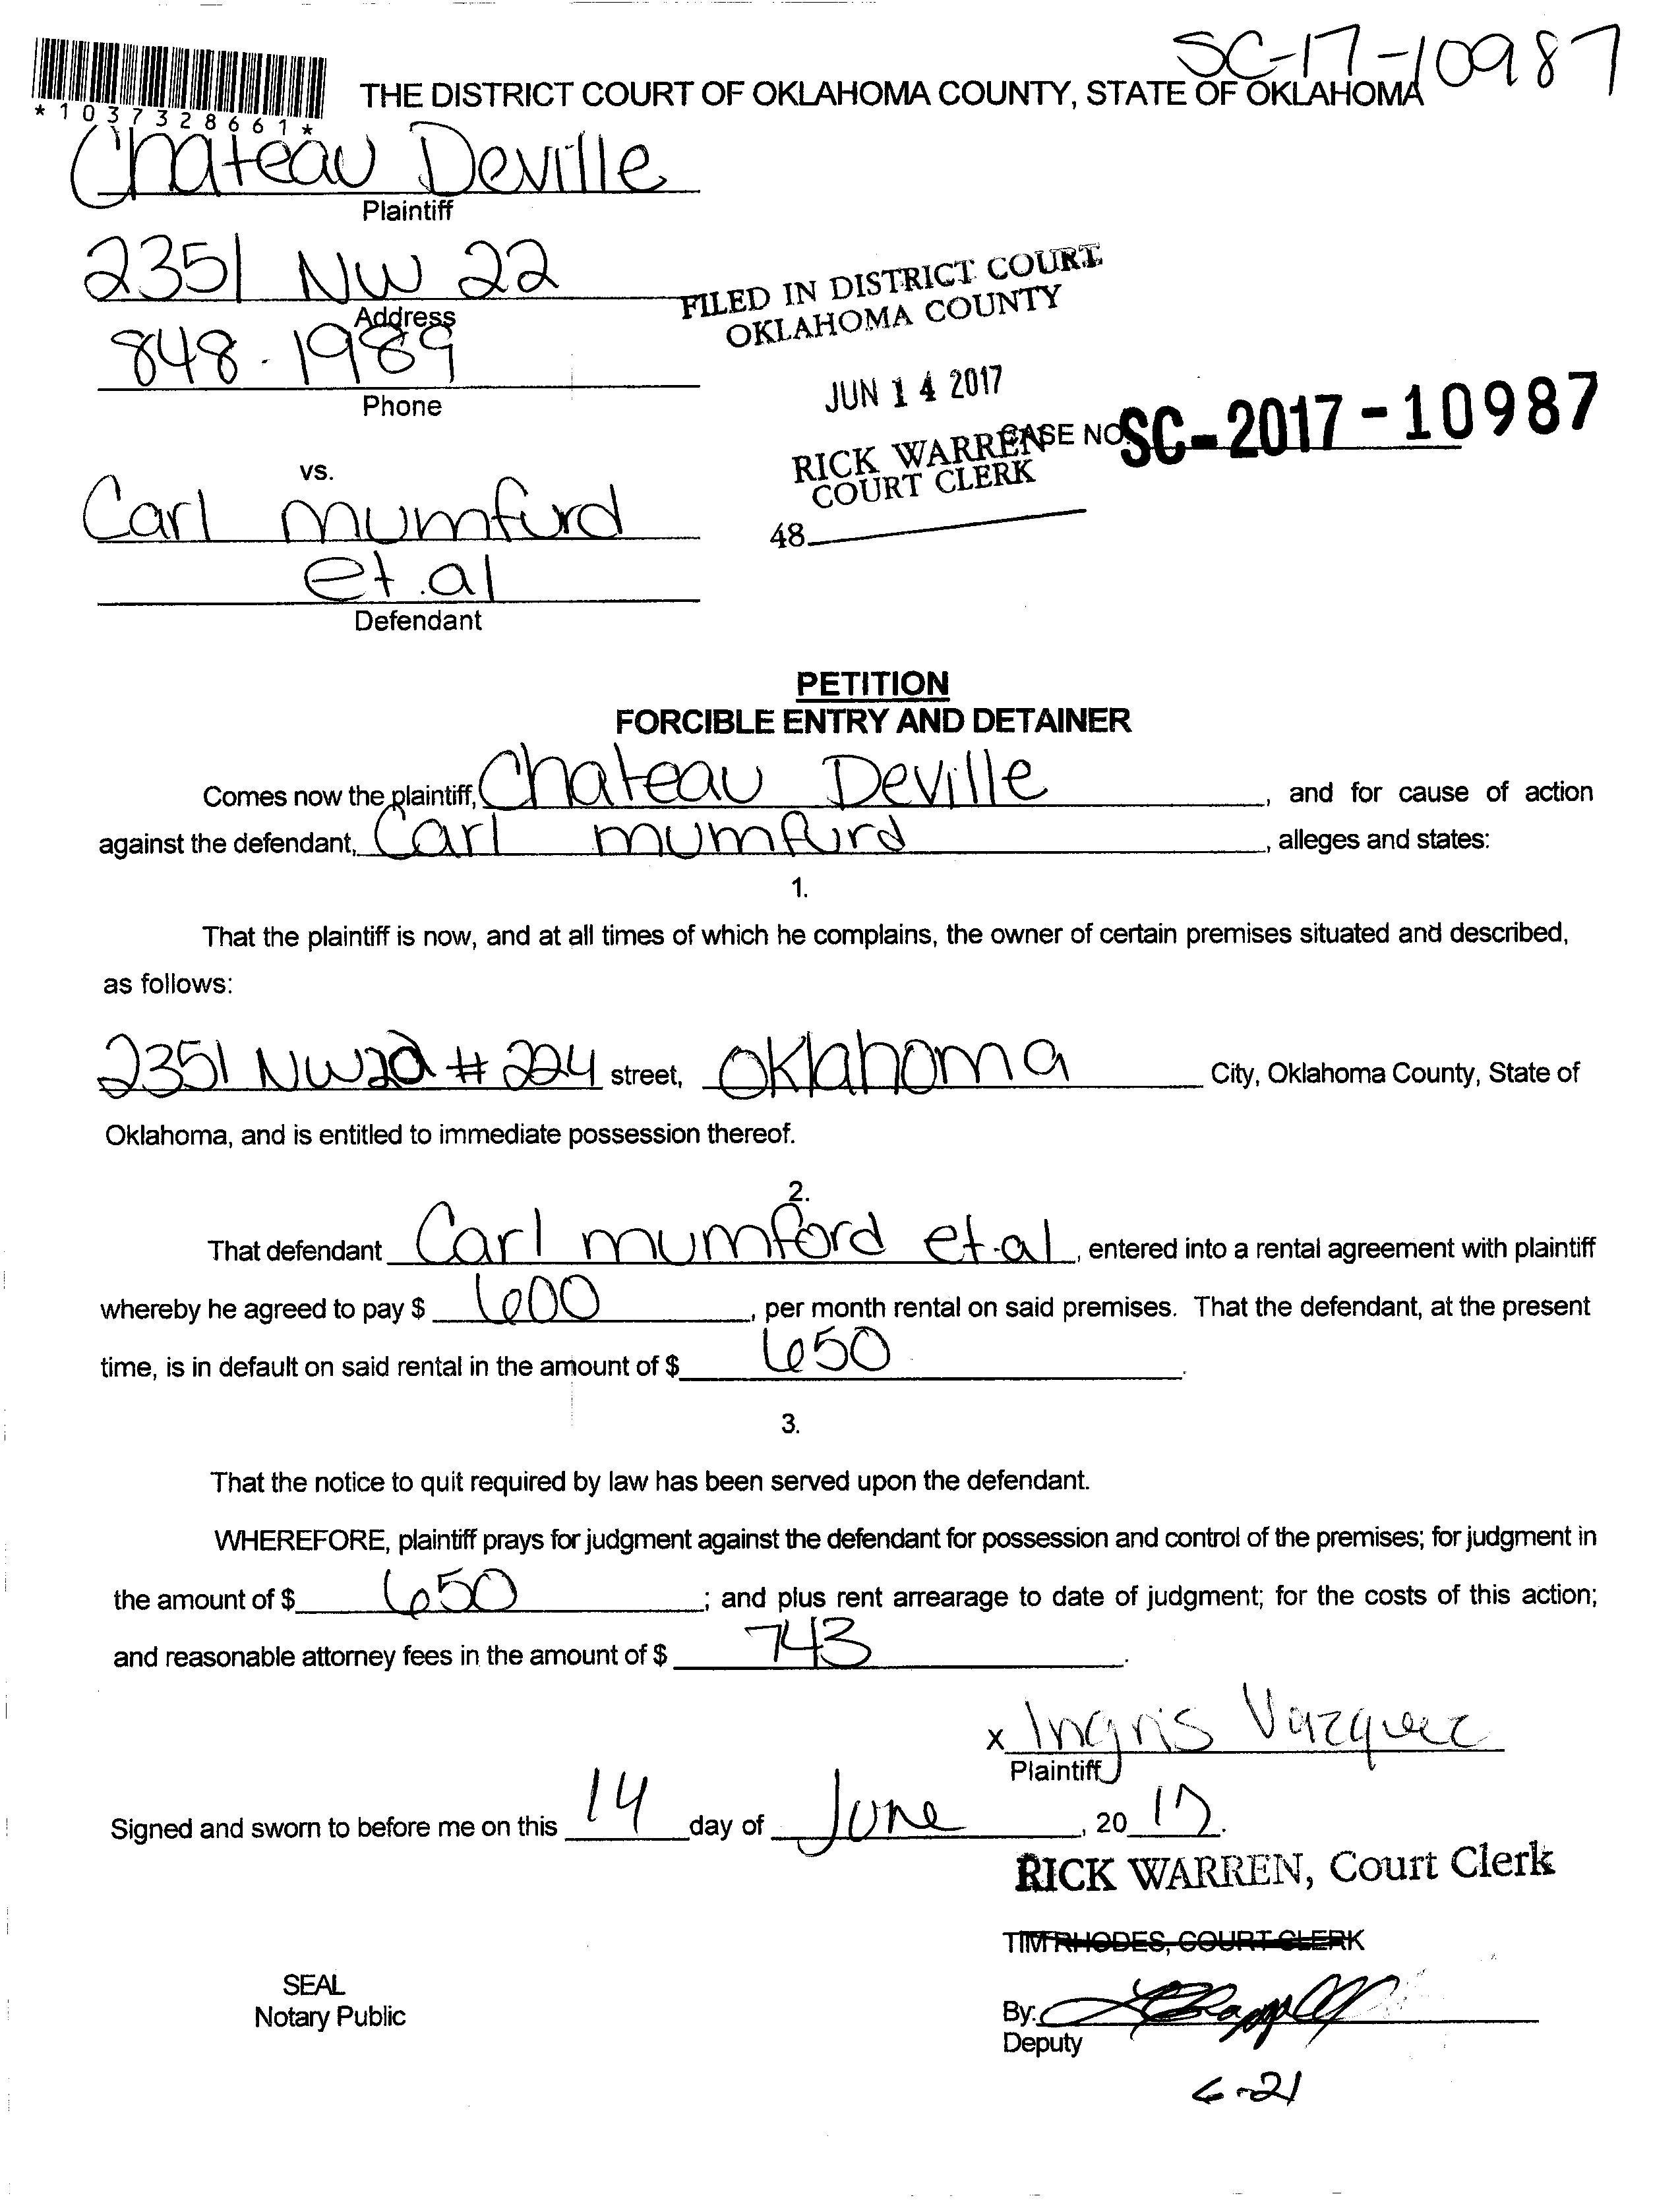 SC-17-10987
THE DISTRICT COURT OF OKLAHOMA COUNTY, STATE OF OKLAHOMA
*1037328661*
Chateau Deville
Plaintiff
2351 NW 22
Address
848-1989
Phone
FILED IN DISTRICT COURT
OKLAHOMA COUNTY
JUN 14 2017
RICK WARREN
COURT CLERK
48
CASE NO. SC-2017-10987
vs.
Carl mumfurd
et.al
Defendant
PETITION
FORCIBLE ENTRY AND DETAINER
Comes now the plaintiff, Chateau Deville, and for cause of action
against the defendant, Carl mumfurd, alleges and states:
1.
That the plaintiff is now, and at all times of which he complains, the owner of certain premises situated and described,
as follows:
2351 NW22 # 224 street, Oklahoma City, Oklahoma County, State of
Oklahoma, and is entitled to immediate possession thereof.
2.
That defendant Carl mumford et.al, entered into a rental agreement with plaintiff
whereby he agreed to pay $ 600, per month rental on said premises. That the defendant, at the present
time, is in default on said rental in the amount of $ 650.
3.
That the notice to quit required by law has been served upon the defendant.
WHEREFORE, plaintiff prays for judgment against the defendant for possession and control of the premises; for judgment in
the amount of $ 650; and plus rent arrearage to date of judgment; for the costs of this action;
and reasonable attorney fees in the amount of $ 743.
x Ingris Vazquez
Plaintiff
Signed and sworn to before me on this 14 day of June, 20 17.
RICK WARREN, Court Clerk
TIM RHODES, COURT CLERK
SEAL
Notary Public
By:
Deputy
6-21